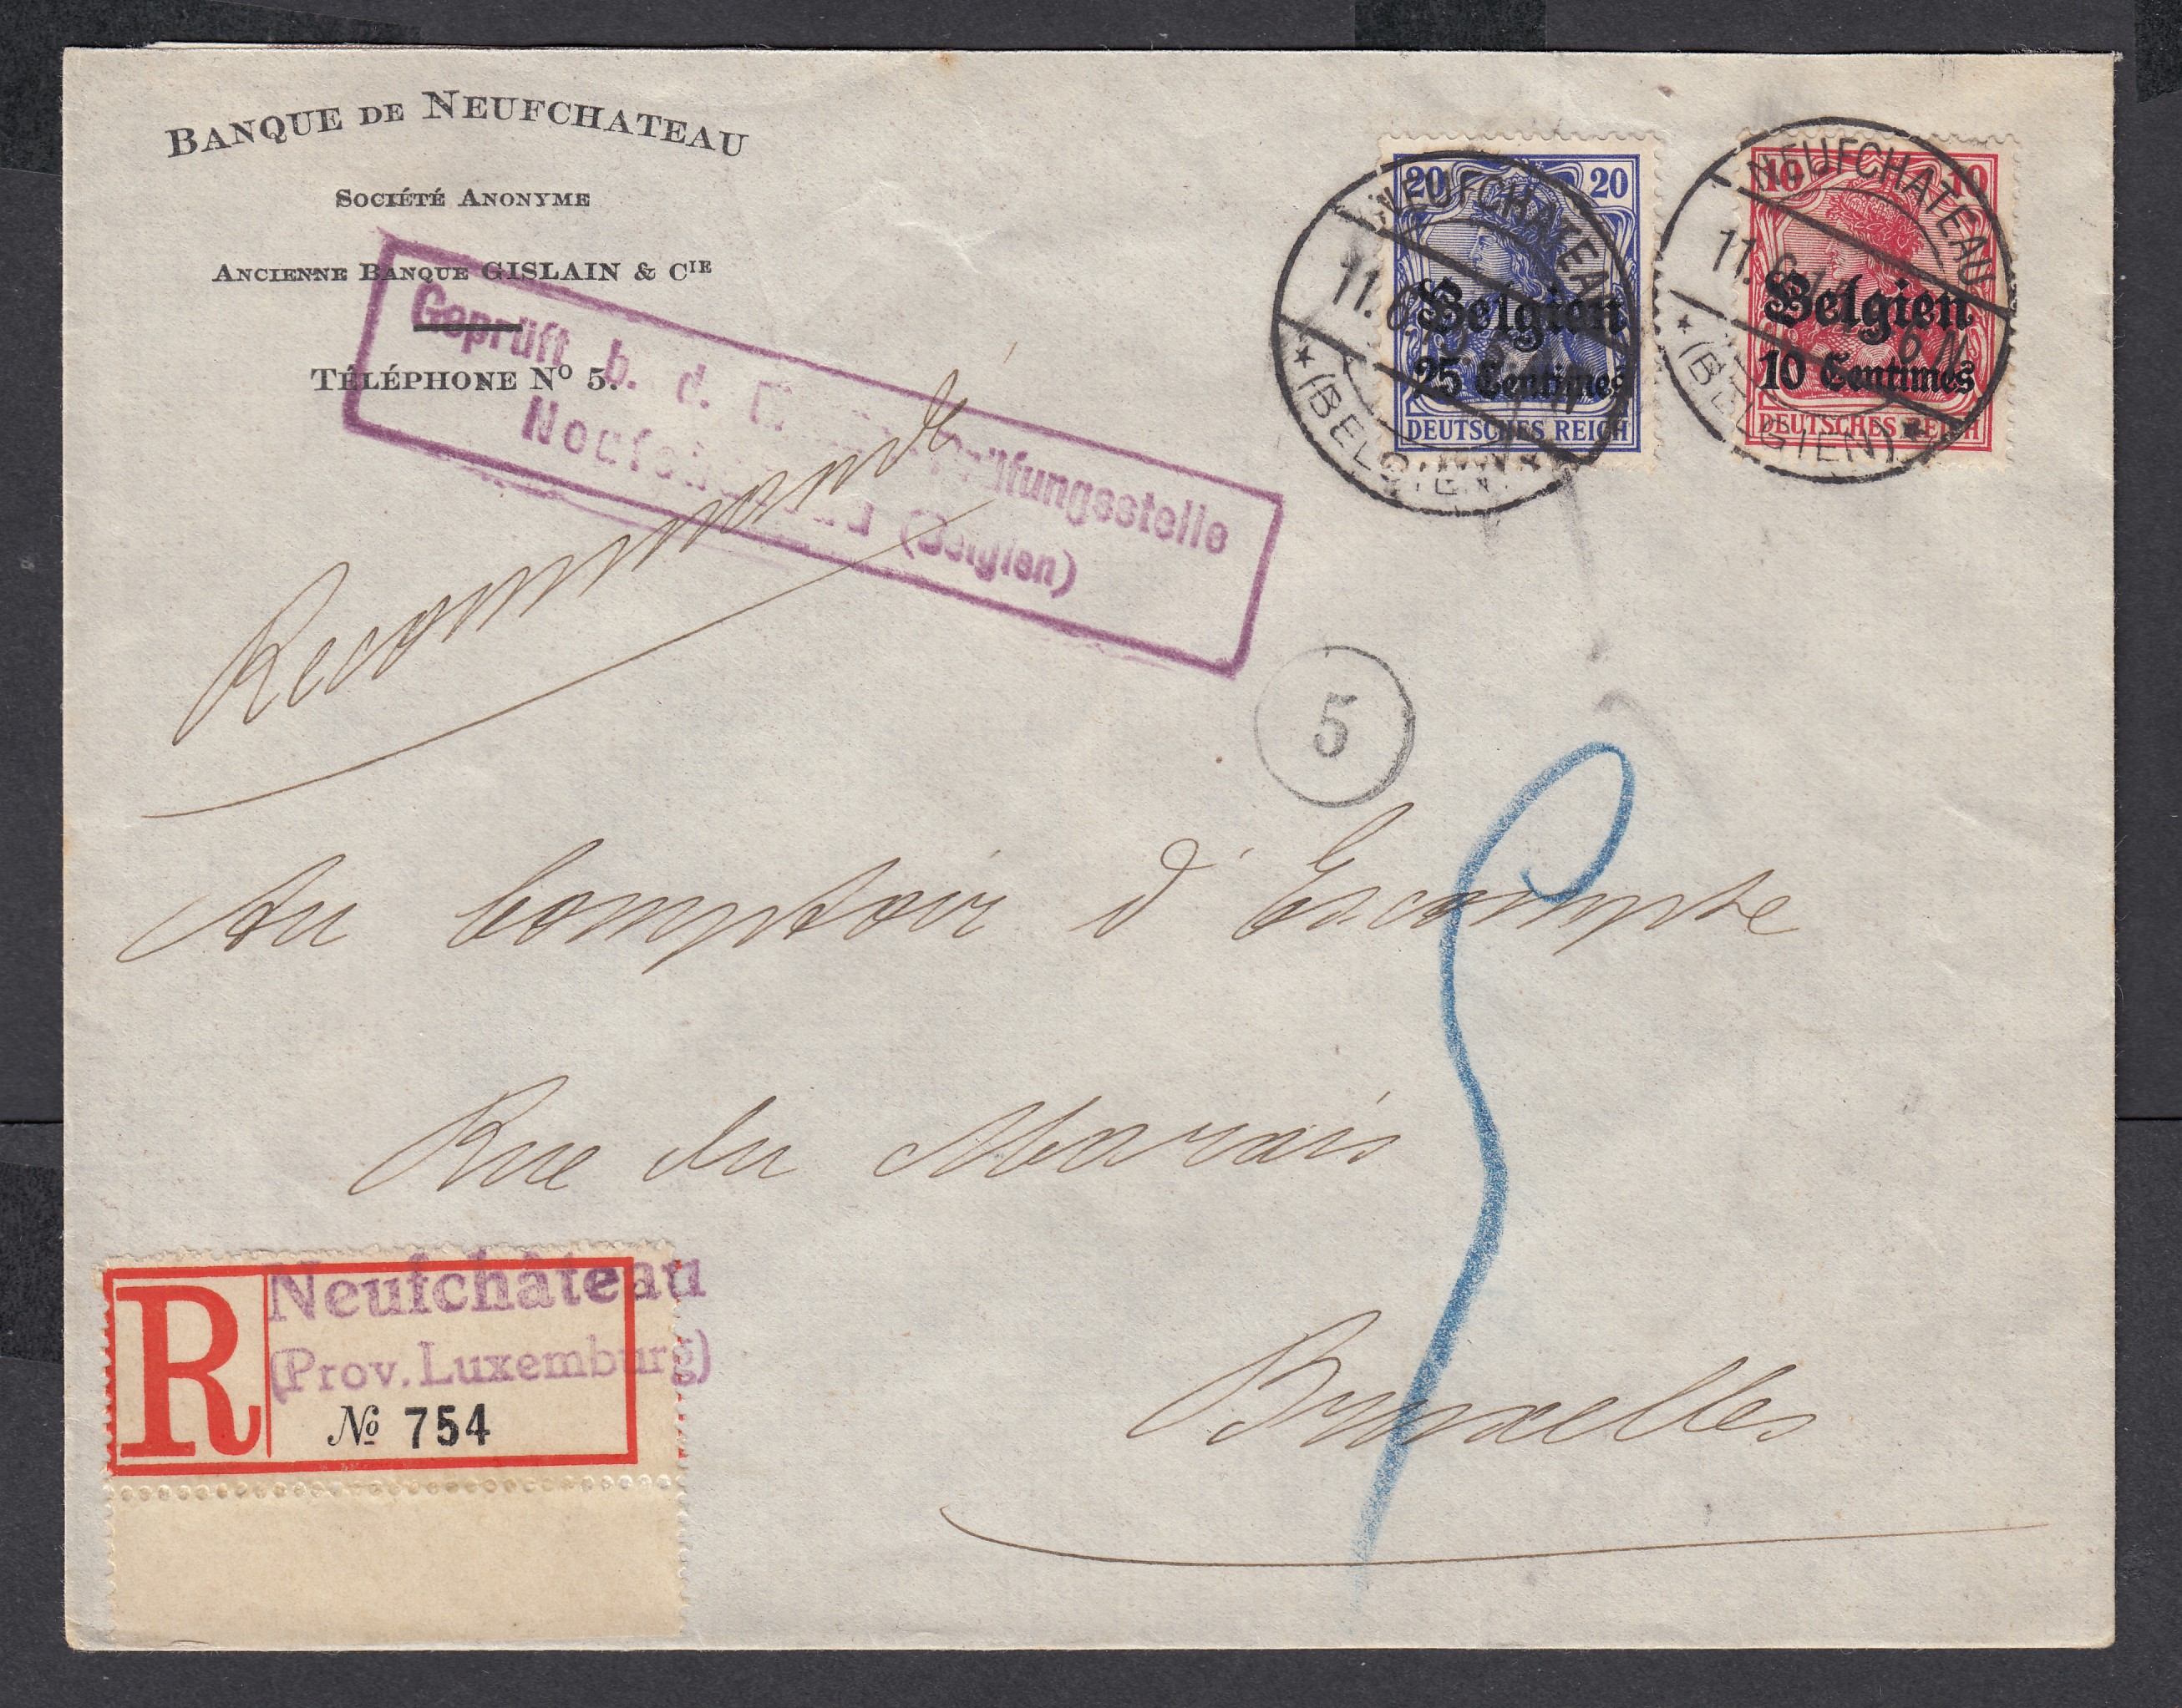 BANQUE DE NEUFCHATEAU
SOCIÉTÉ ANONYME
ANCIENNE BANQUE GISLAIN & CIE
TÉLÉPHONE No 5.
Geprüft b. d.
(Belgien)
Recommandé
20 20
Belgien
25 Centimes
DEUTSCHES REICH
NEUFCHATEAU
11.6.
(BELGIEN)
10 10
Belgien
10 Centimes
DEUTSCHES REICH
NEUFCHATEAU
11.6.
6 N
(BELGIEN)
5
Au Comptoir d'Escompte
Rue du Marais
Bruxelles
R
Neufchâteau
(Prov. Luxemburg)
No 754